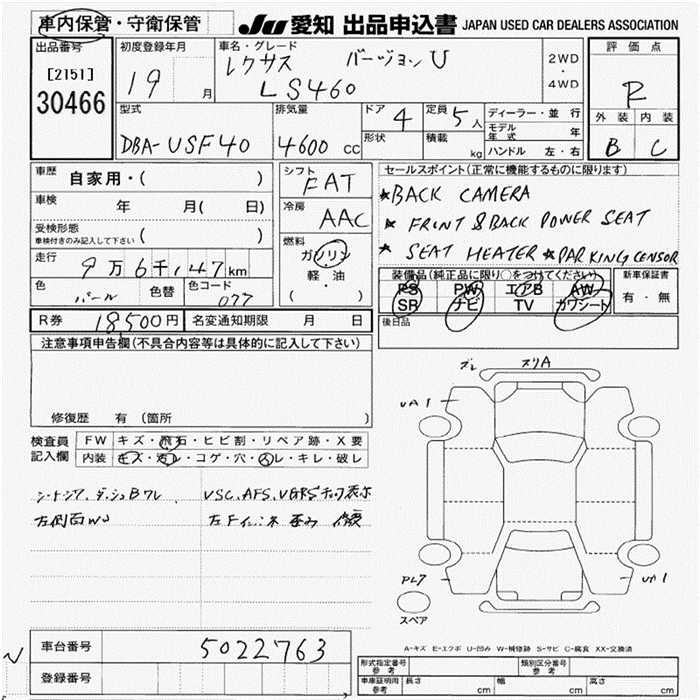 車内保管・守衛保管
JU 愛知 出品申込書 JAPAN USED CAR DEALERS ASSOCIATION
出品番号
[2151]
30466
初度登録年月
19 月
車名・グレード
レクサス バージョン U
LS460
2WD
・
4WD
評価点
R
外装 内装
B C
型式
DBA-USF40
排気量
4600 cc
ドア 4
形状
定員 5人
積載 kg
ディーラー・並行
モデル年式 年
ハンドル 左・右
車歴
自家用・( )
車検
年 月( 日)
受検形態
車検付きのみ記入して下さい ( )
走行
9万6千147km
色 パール
色替
色コード 077
シフト
FAT
冷房
AAC
燃料
ガソリン
軽・油
( ・ )
セールスポイント(正常に機能するものに限ります)
★BACK CAMERA
★ FRONT & BACK POWER SEAT
★ SEAT HEATER ★PARKING CENSOR
装備品(純正品に限り○をつけてください)
PS PW エアB AW
SR ナビ TV カワシート
新車保証書
有・無
後日品
R券 18500円
名変通知期限 月 日
注意事項申告欄(不具合内容等は具体的に記入して下さい)
修復歴 有 (箇所
検査員
記入欄
FW キズ・飛石・ヒビ割・リペア跡・X要
内装 キズ・汚レ・コゲ・穴・スレ・キレ・破レ
VSC,AFS,VGRSチェック表示
スリA
UA1
PL7
UA1
スペア
A-キズ E-エクボ U-凹み W-補修跡 S-サビ C-腐食 XX-交換済
車台番号 5022763
登録番号
形式指定番号
参考
類別区分番号
参考
車庫証明用
参考
長さ cm
幅 cm
高さ cm